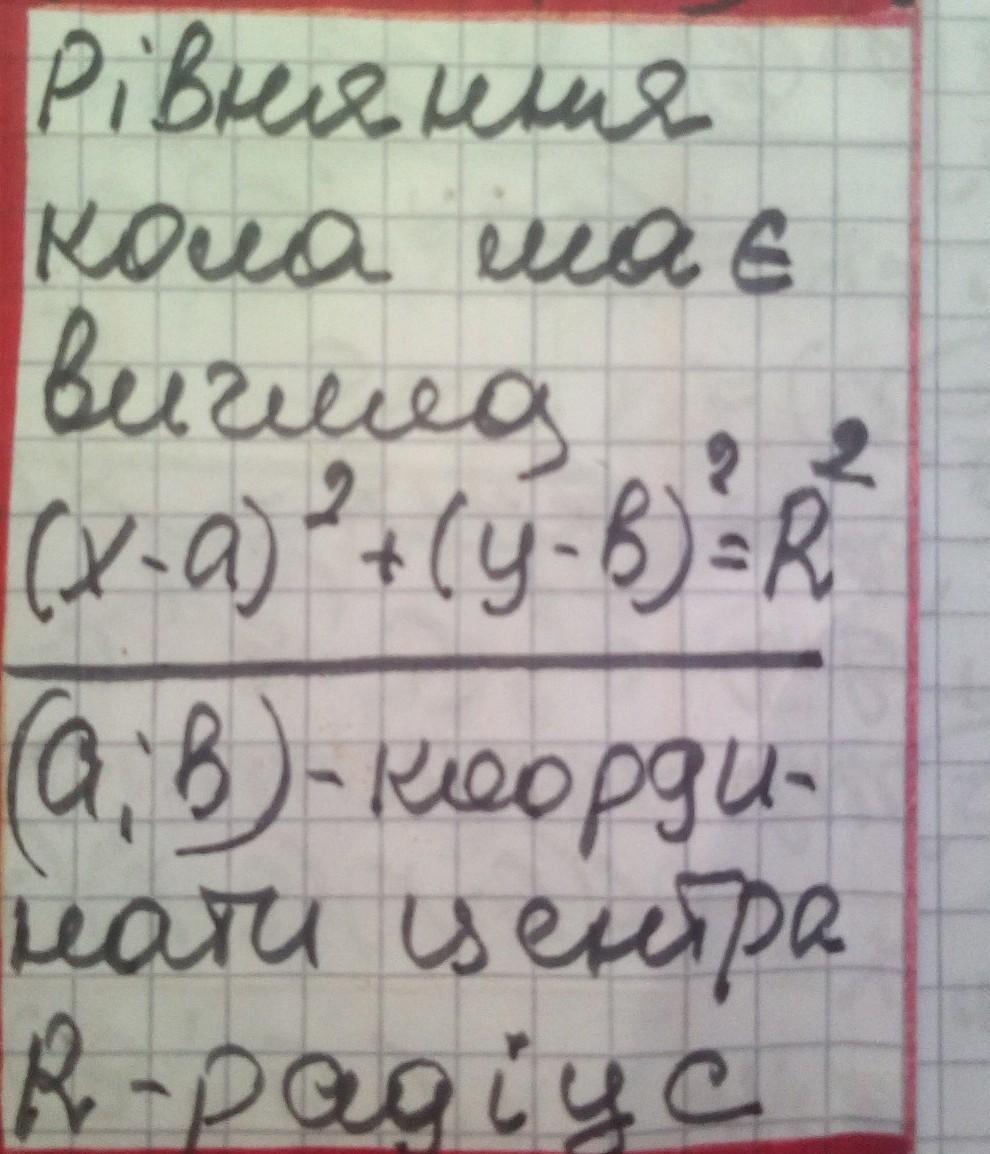 Рівняння
кола має
вигляд
(x-a)²+(y-в)²=R²
(a;в)-коорди-
нати центра
R-радіус